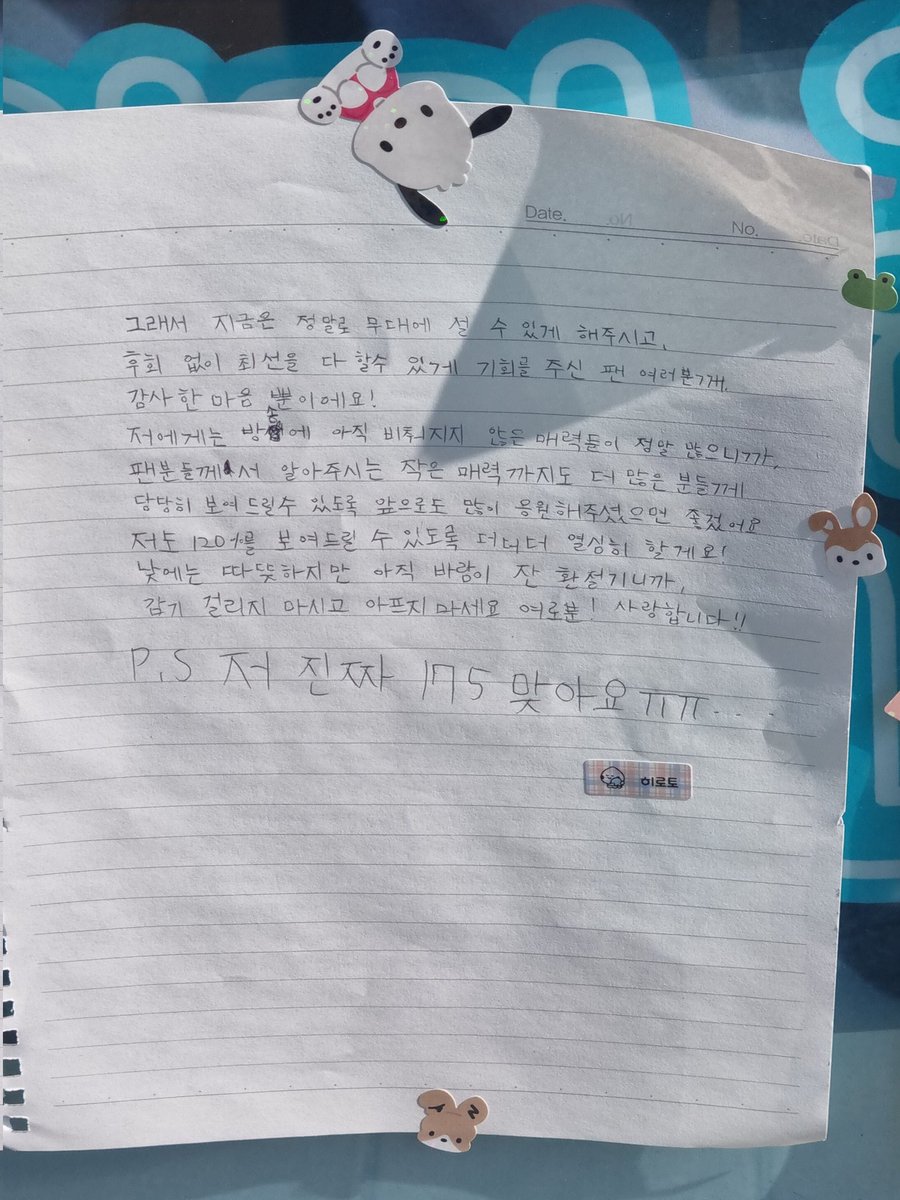 Date. No.
그래서 지금은 정말로 무대에 설 수 있게 해주시고,
후회 없이 최선을 다 할수 있게 기회를 주신 팬 여러분께,
감사한 마음 뿐이에요!
저에게는 방송에 아직 비춰지지 않은 매력들이 정말 많으니까,
팬분들께서 알아주시는 작은 매력까지도 더 많은 분들께
당당히 보여드릴수 있도록 앞으로도 많이 응원해주셨으면 좋겠어요
저도 120%를 보여드릴 수 있도록 더더더 열심히 할게요!
낮에는 따뜻하지만 아직 바람이 잔 환절기니까,
감기 걸리지 마시고 아프지마세요 여로분! 사랑합니다!!
P.S 저 진짜 175 맞아요 ㅠㅠ....
히로토